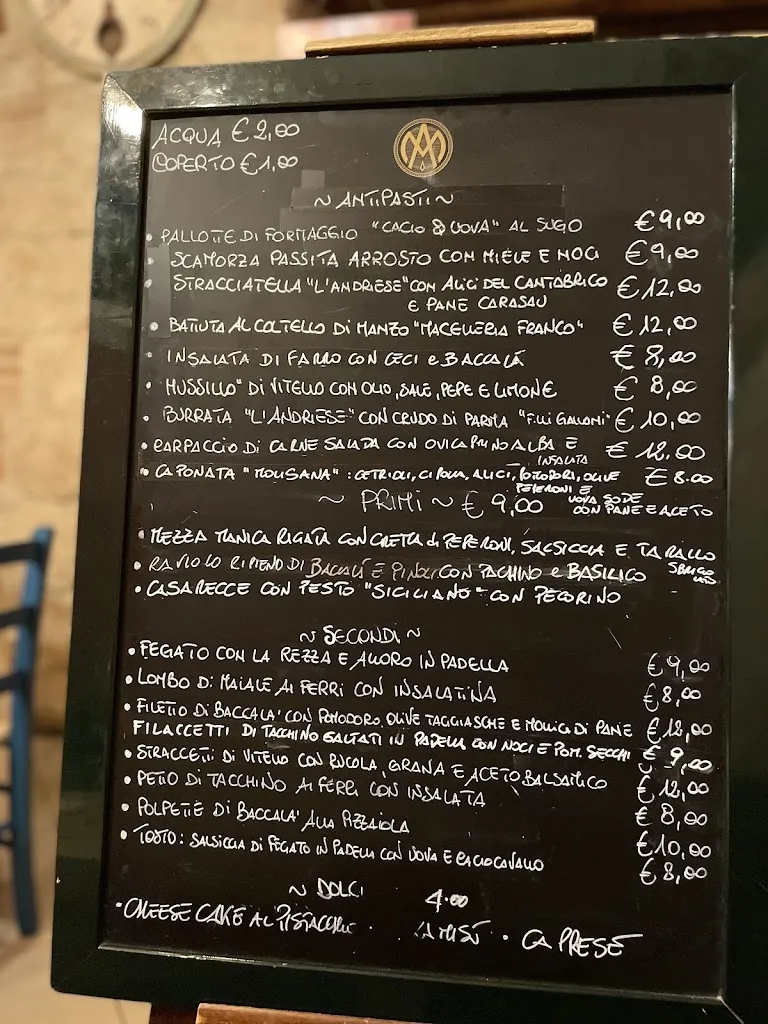 ACQUA € 2,00
COPERTO € 1,00
~ ANTIPASTI ~
• PALLOTTE DI FORMAGGIO "CACIO & UOVA" AL SUGO € 9,00
• SCAMORZA PASSITA ARROSTO CON MIELE E NOCI € 9,00
STRACCIATELLA "L'ANDRIESE" CON ALICI DEL CANTABRICO € 12,00
E PANE CARASAU
• BATTUTA AL COLTELLO DI MANZO "MACELLERIA FRANCO" € 12,00
• INSALATA DI FARRO CON CECI e BACCALÀ € 8,00
• MUSSILLO" DI VITELLO CON OLIO, SALE, PEPE E LIMONE € 8,00
• BURRATA "L'ANDRIESE" CON CRUDO DI PARMA "F.lli GALLONI" € 10,00
• CARPACCIO DI CARNE SALADA CON OVICAPRINO ALBA E € 12.00
INSALATA
• CAPONATA "MOLISANA": CETRIOLI, CIPOLLA, ALICI, POMODORI, OLIVE € 8.00
PEPERONI E UOVA SODE
CON PANE E ACETO
~ PRIMI ~ € 9,00
• MEZZA MANICA RIGATA CON CREMA di PEPERONI, SALSICCIA E TARALLO
SBRICIOLATO
• RAVIOLO RIPIENO DI BACCALÀ E PINOLI CON PACHINO e BASILICO
• CASARECCE CON PESTO "SICILIANO" CON PECORINO
~ SECONDI ~
• FEGATO CON LA REZZA E ALLORO IN PADELLA € 9,00
• LOMBO DI MAIALE AI FERRI CON INSALATINA € 8,00
• FILETTO DI BACCALA' CON POMODORO, OLIVE TAGGIASCHE E MOLLICA DI PANE € 12,00
FILACCETTI DI TACCHINO SALTATI IN PADELLA CON NOCI E POM. SECCHI € 9,00
• STRACCETTI DI VITELLO CON RUCOLA, GRANA E ACETO BALSAMICO € 12,00
• PETTO DI TACCHINO AI FERRI CON INSALATA € 8,00
• POLPETTE DI BACCALA' ALLA PIZZAIOLA € 10,00
• TOSTO: SALSICCIA DI FEGATO IN PADELLA CON UOVA E CACIOCAVALLO € 8,00
~ DOLCI 4.00
• CHEESE CAKE AL PISTACCHIO • • CAPRESE